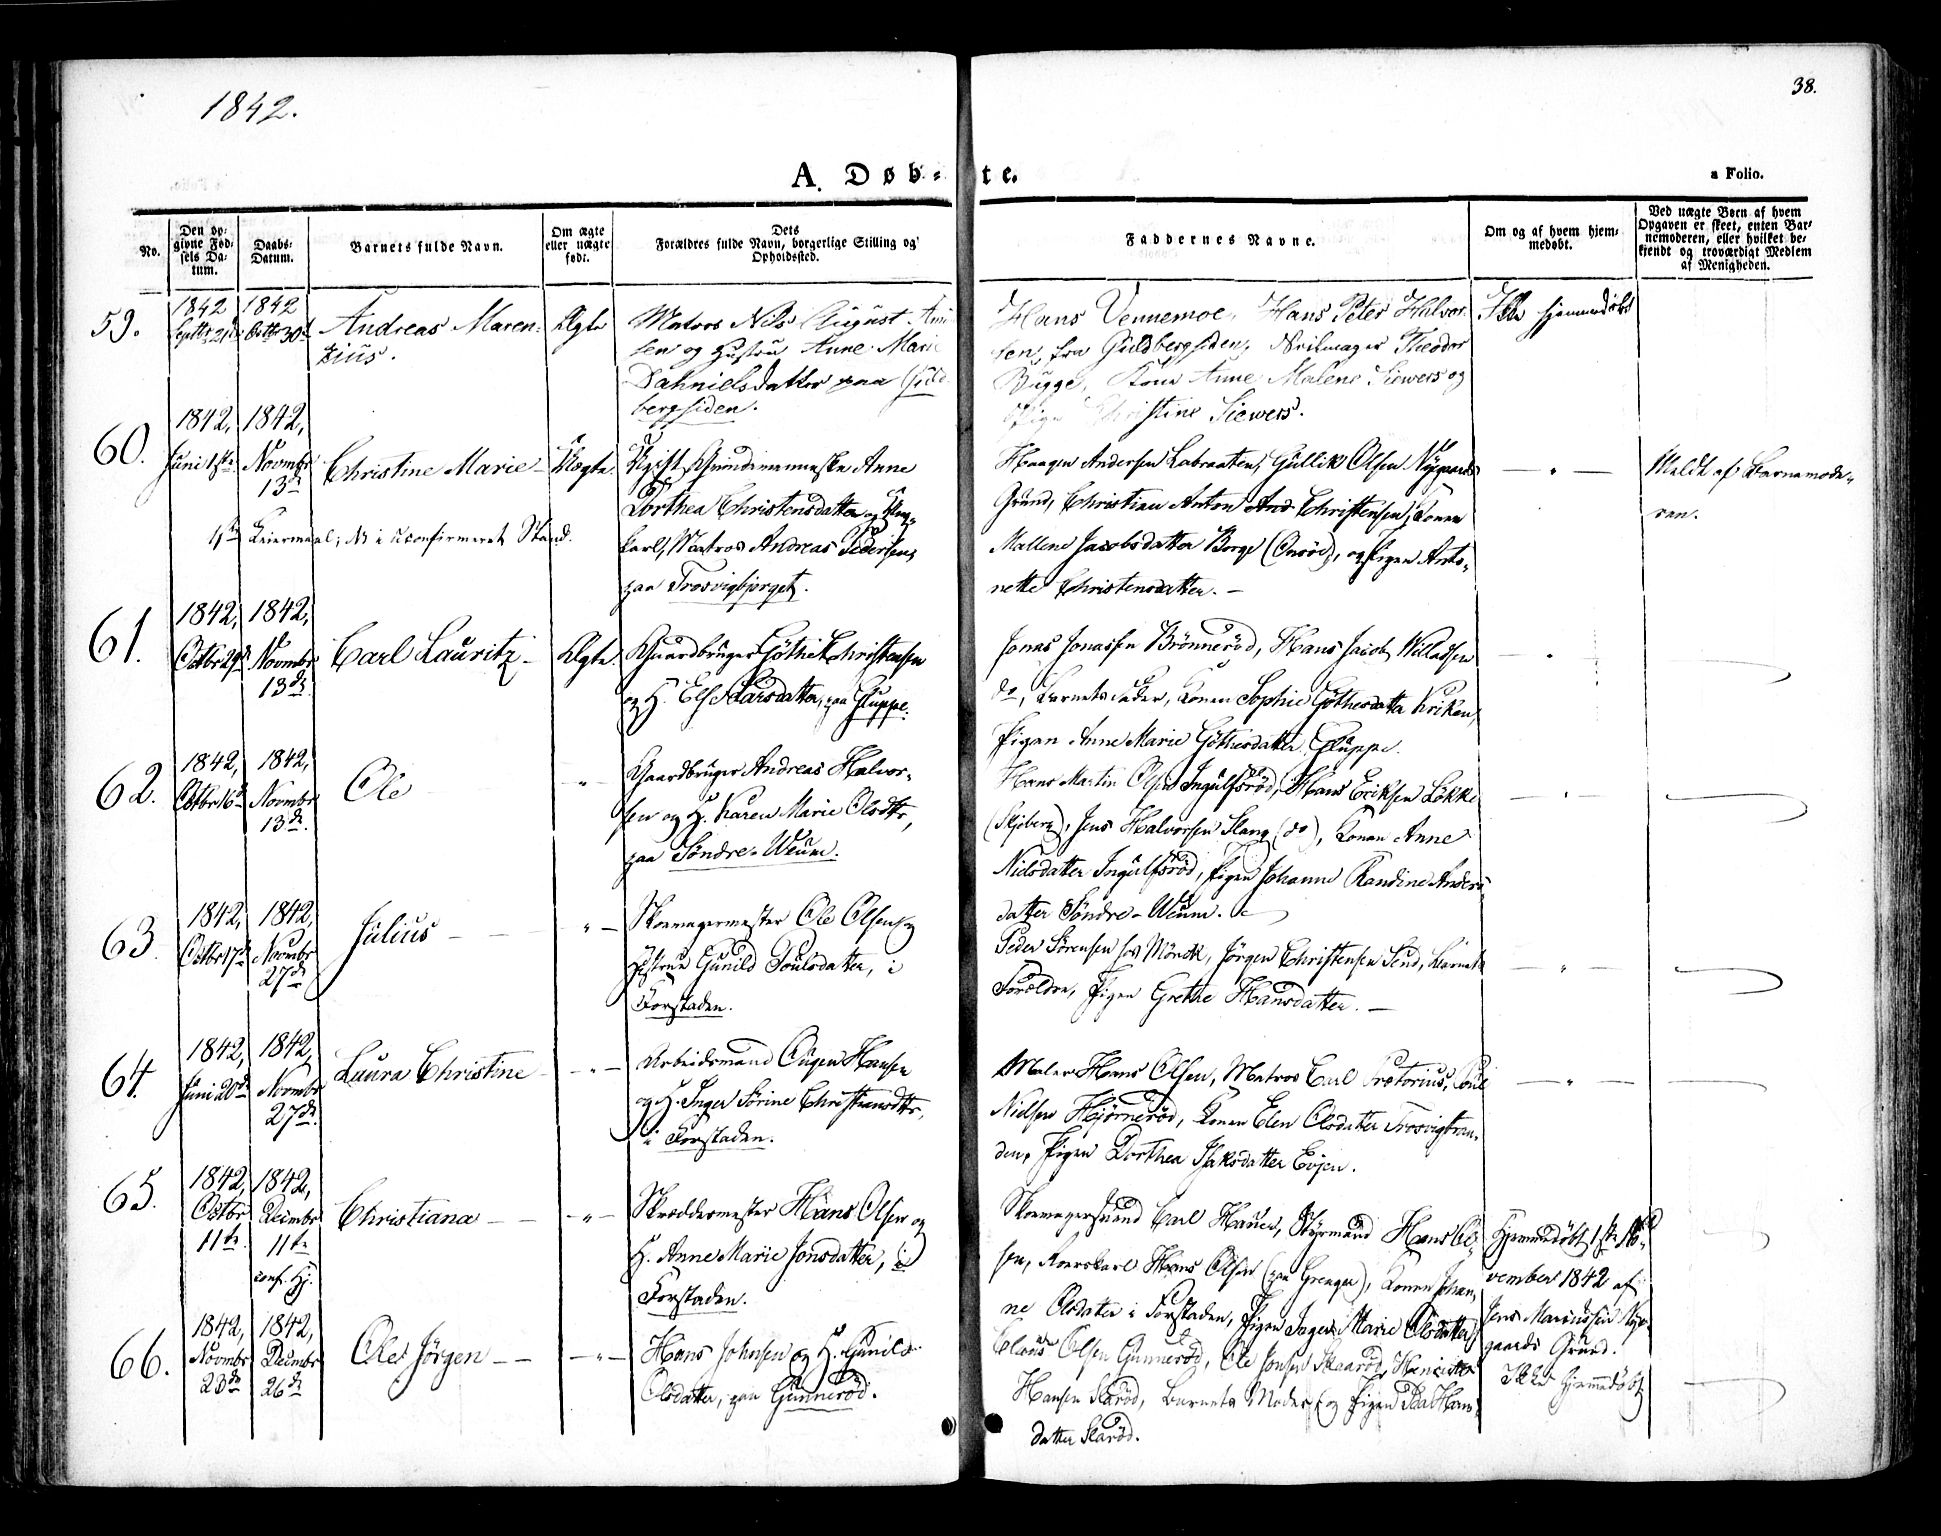 1842.
38.
A. Døb-te.
a Folio.
No.
Den op-
givne Fød-
sels Da-
tum.
Daabs-
Datum.
Barnets fulde Navn.
Om ægte
eller uægte
født.
Dets
Forældres fulde Navn, borgerlige Stilling og
Opholdssted.
Faddernes Navne.
Om og af hvem hjem-
medøbt.
Ved uægte Børn af hvem
Opgaven er skeet, enten Bar-
nemoderen, eller hvilket be-
kjendt og troværdigt Medlem
af Menigheden.
59.
1842
Septbr 21
1842
Octbr 30
Andreas Maren-
zius.
Ægte
Matros Nils August
sen og Hustru Anne Marie
Dahnielsdatter paa Guld
bergsiden.
Hans Vennemoe, Hans Peter Halvor
sen, fra Guldbergsiden, Theodor
Bugge, Kone Anne Malene Siewers og
Pige Christine Siewers.
Ikke hjemmedøbt
60.
1842,
Juni 1ste
1842,
Novmbr
13de
Christine Marie
Uægte
Ugift Anne
Dorthea Christensdatter og
karl, Matros Andreas Pedersen,
paa Trosvigbjerget.
1ste Leiermaal; NB i uconfirmeret Stand.
Haagen Andersen Labraaten, Gullik Olsen Nygaards
Grund, Christian Anton Christensen, Konen
Mallene Jacobsdatter Borge (Onsöe), og Pigen Anto-
nette Christensdatter. –
– " –
Meldt af Barnemode-
ren.
61.
1842,
Octbr 29
1842,
Novmbr
13de
Carl Lauritz
Ægte
Gaardbruger Göthe Christensen
og H. Else Larsdatter, paa Gluppe.
Jonas Jonassen Brönneröd, Hans Jacob Willadsen
do, Barnets Fader, Konen Sophie Göthesdatter Kriken,
Pigen Anne Marie Göthesdatter Gluppe.
– " –
62.
1842,
Octbr 16de
1842,
Novmbr
13de
Ole
"
Gaardbruger Andreas Halvor-
sen og H. Karen Marie Olsdtr,
paa Söndre-Weum.
Hans Martin Olsen Ingulfsröd, Hans Eriksen Lökke
(Skjeberg), Jens Halvorsen Slang (do), Konen Anne
Nielsdatter Ingulfsröd, Pigen Johanne Randine Anders
datter Söndre-Weum.
– " –
63.
1842,
Octbr 17de
1842,
Novmbr
27de
Julius
– " –
Skomagermester Ole Olsen og
Hustrue Gunild Poulsdatter, i
Forstaden.
Peder Sörensen hos Mönck, Jörgen Christensen Lund, Barnets
Forældre, Pigen Grethe Hansdatter. –
– " –
64.
1842,
Juni 20de
1842,
Novmbr
27de
Laura Christine
– " –
Arbeidsmand Hansen
og H. Inger Sörine Christiansdtr,
i Forstaden.
Maler Hans Olsen, Matros Carl Pretorius, Poul
Nielsen Hjörneröd, Konen Elen Olsdatter Trosvigstran-
den, Pigen Dorthea Isaksdatter Evjen.
– " –
65.
1842,
Octbr
11te
1842,
Decmbr
11te
conf. Hj.
Christiana
– " –
Skræddermester Hans Olsen og
H. Anne Marie Jonsdatter, i
Forstaden.
Skomagersvend Carl Hauer, Styrmand Hans Ol-
sen, Hans Olsen (paa Grenager), Konen Johan-
ne Olsdatter i Forstaden, Pigen Inger Marie Olsdatter
Hjemmedöbt 1ste No-
vember 1842 af
Jens Mariussen Nye-
gaards Grund.
66.
1842,
Novmbr
23de
1842,
Decmbr
26de
Ole Jörgen
– " –
Hans Johnsen og H. Gunild
Olsdatter, paa Gunneröd.
Claus Olsen Gunneröd, Ole Jonsen Skaaröd, Henrik
Hansen Skaröd, Barnets Moder og Pigen Ida Hans
datter Skaröd.
Ikke hjemmedöbt